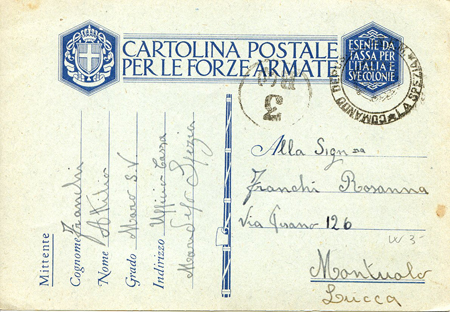 CARTOLINA POSTALE
PER LE FORZE ARMATE
ESENTE DA
TASSA PER
L'ITALIA E
SVE COLONIE
COMANDO LA SPEZIA
3
Mittente
Cognome Franchi
Nome Attilio
Grado Maro S.V
Indirizzo Ufficio Cassa
Spezia
Alla Sign na
Franchi Rosanna
Via 126
W 3-
Montuolo
Lucca